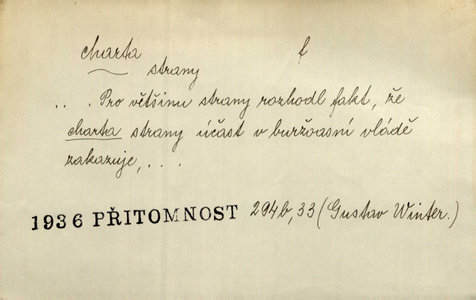 charta f
strany
. . . Pro většinu strany rozhodl fakt, že
charta strany účast v buržoasní vládě
zakazuje, . . .
1936 PŘITOMNOST 294b, 33 (Gustav Winter.)